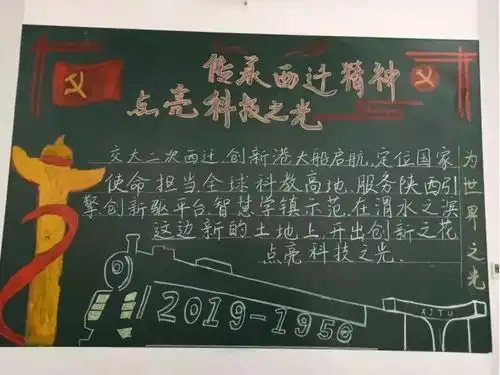 传承西迁精神
点亮科技之光
交大二次西迁,创新港大船启航,定位国家
使命担当,全球科教高地,服务陕西引
擎创新驱平台智慧学镇示范,在渭水之滨
这边新的土地上,开出创新之花
点亮科技之光.
为世界之光
2019-1956
XJTU